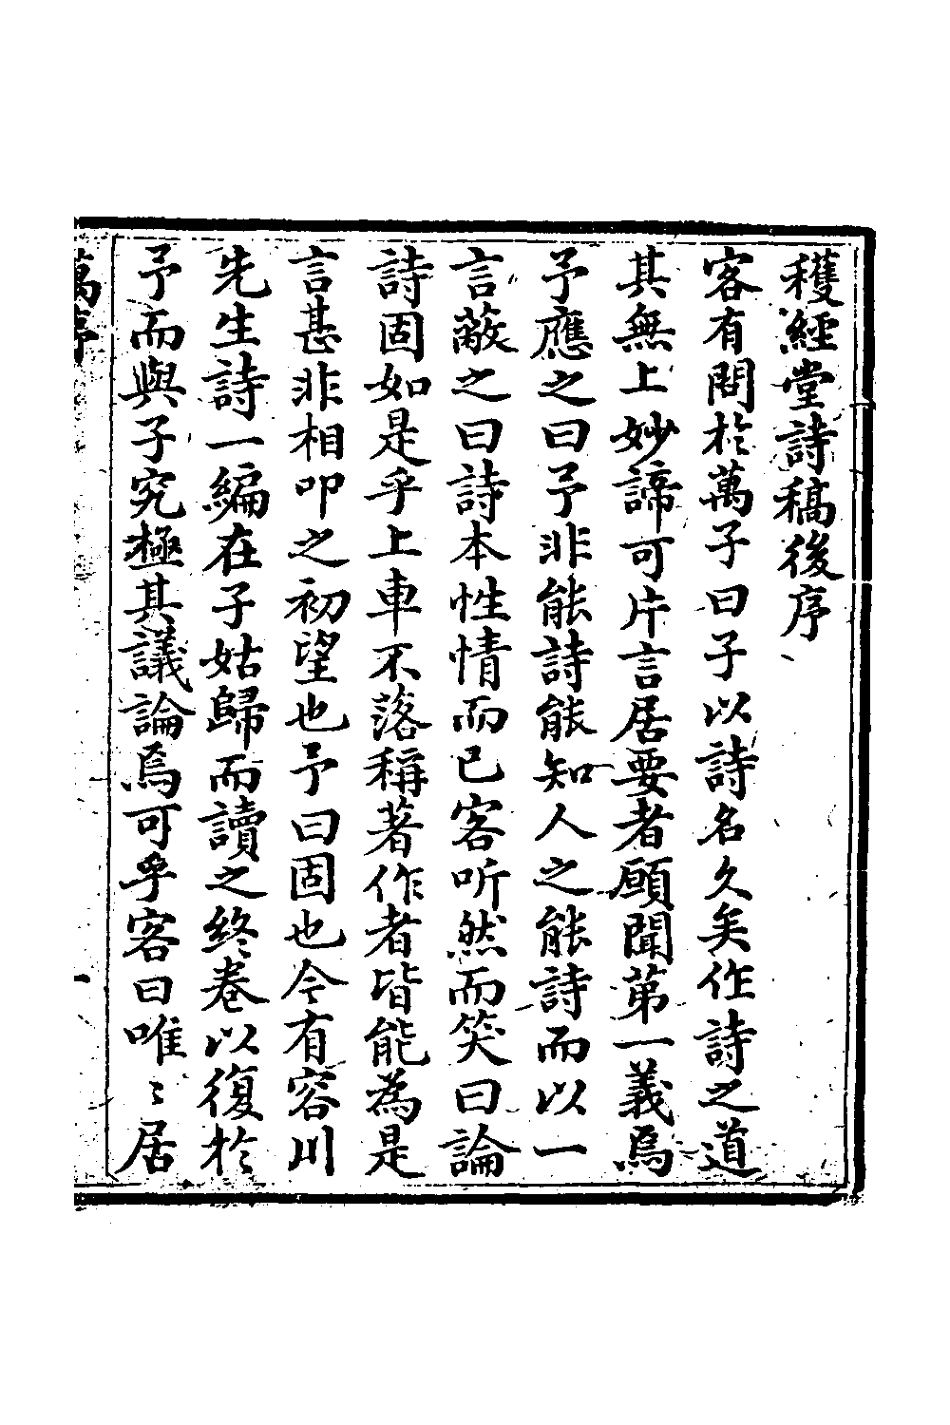 穫經堂詩稿後序
客有問於萬子曰子以詩名久矣作詩之道
其無上妙諦可片言居要者願聞第一義焉
予應之曰予非能詩能知人之能詩而以一
言蔽之曰詩本性情而已客听然而笑曰論
詩固如是乎上車不落稱著作者皆能為是
言甚非相叩之初望也予曰固也今有容川
先生詩一編在子姑歸而讀之終卷以復於
予而與子究極其議論焉可乎客曰唯〻居